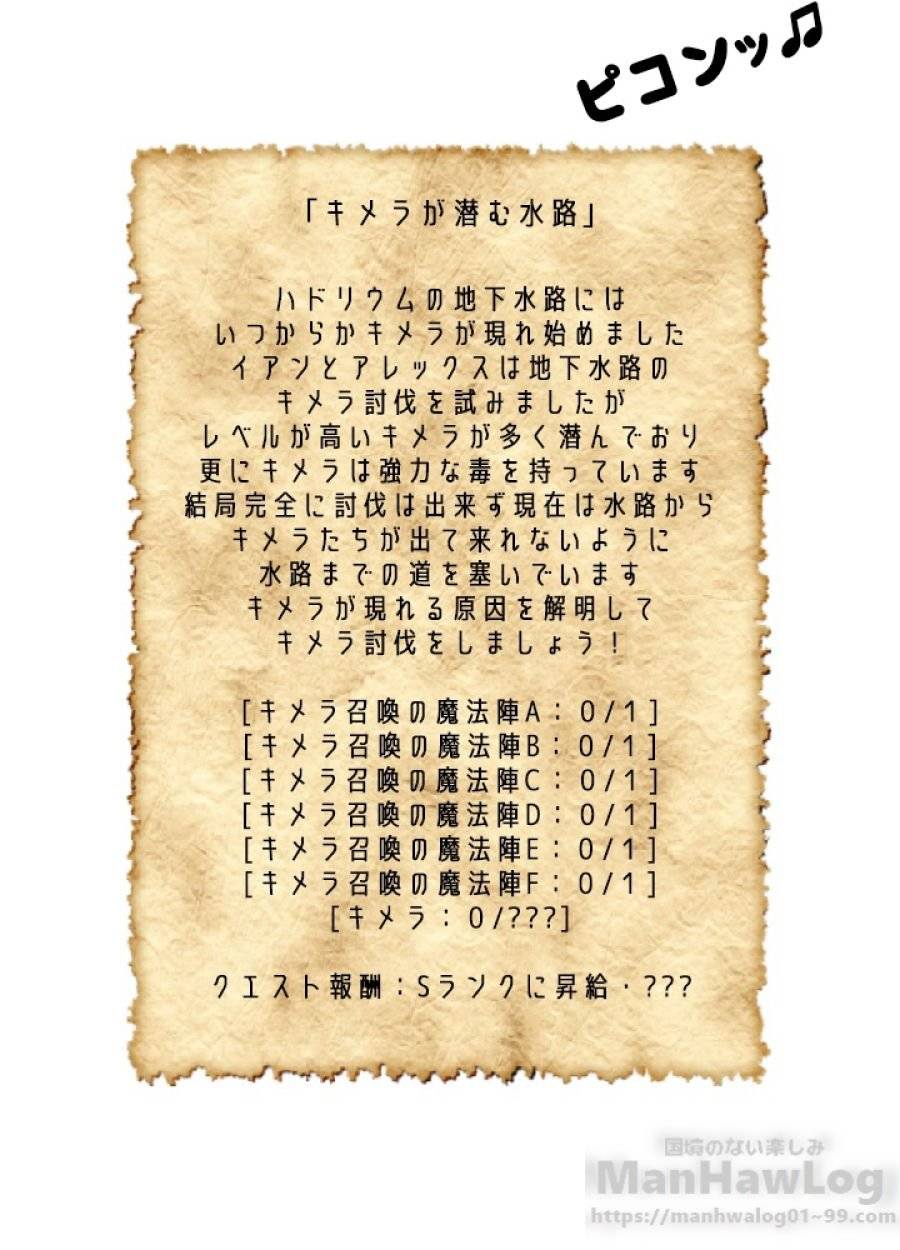 ピコンッ♫
「キメラが潜む水路」
ハドリウムの地下水路には
いつからかキメラが現れ始めました
イアンとアレックスは地下水路の
キメラ討伐を試みましたが
レベルが高いキメラが多く潜んでおり
更にキメラは強力な毒を持っています
結局完全に討伐は出来ず現在は水路から
キメラたちが出て来れないように
水路までの道を塞いでいます
キメラが現れる原因を解明して
キメラ討伐をしましょう!
[キメラ召喚の魔法陣A:0/1]
[キメラ召喚の魔法陣B:0/1]
[キメラ召喚の魔法陣C:0/1]
[キメラ召喚の魔法陣D:0/1]
[キメラ召喚の魔法陣E:0/1]
[キメラ召喚の魔法陣F:0/1]
[キメラ:0/???]
クエスト報酬:Sランクに昇給・???
国境のない楽しみ
ManHawLog
https://manhwalog01~99.com